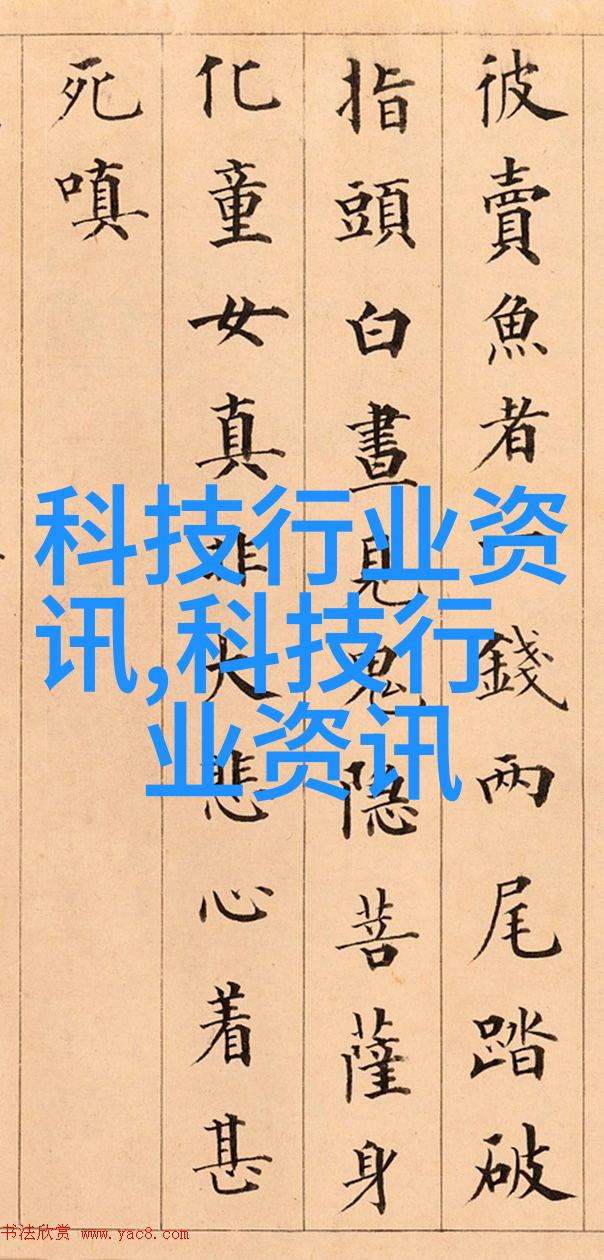 彼賣魚者一錢两尾踏破
指頭白晝見鬼隐菩薩身
化童女真非大悲心着甚
死嗔
科技行业资
讯,科技行
业资讯
书法欣赏 www.yac8.com